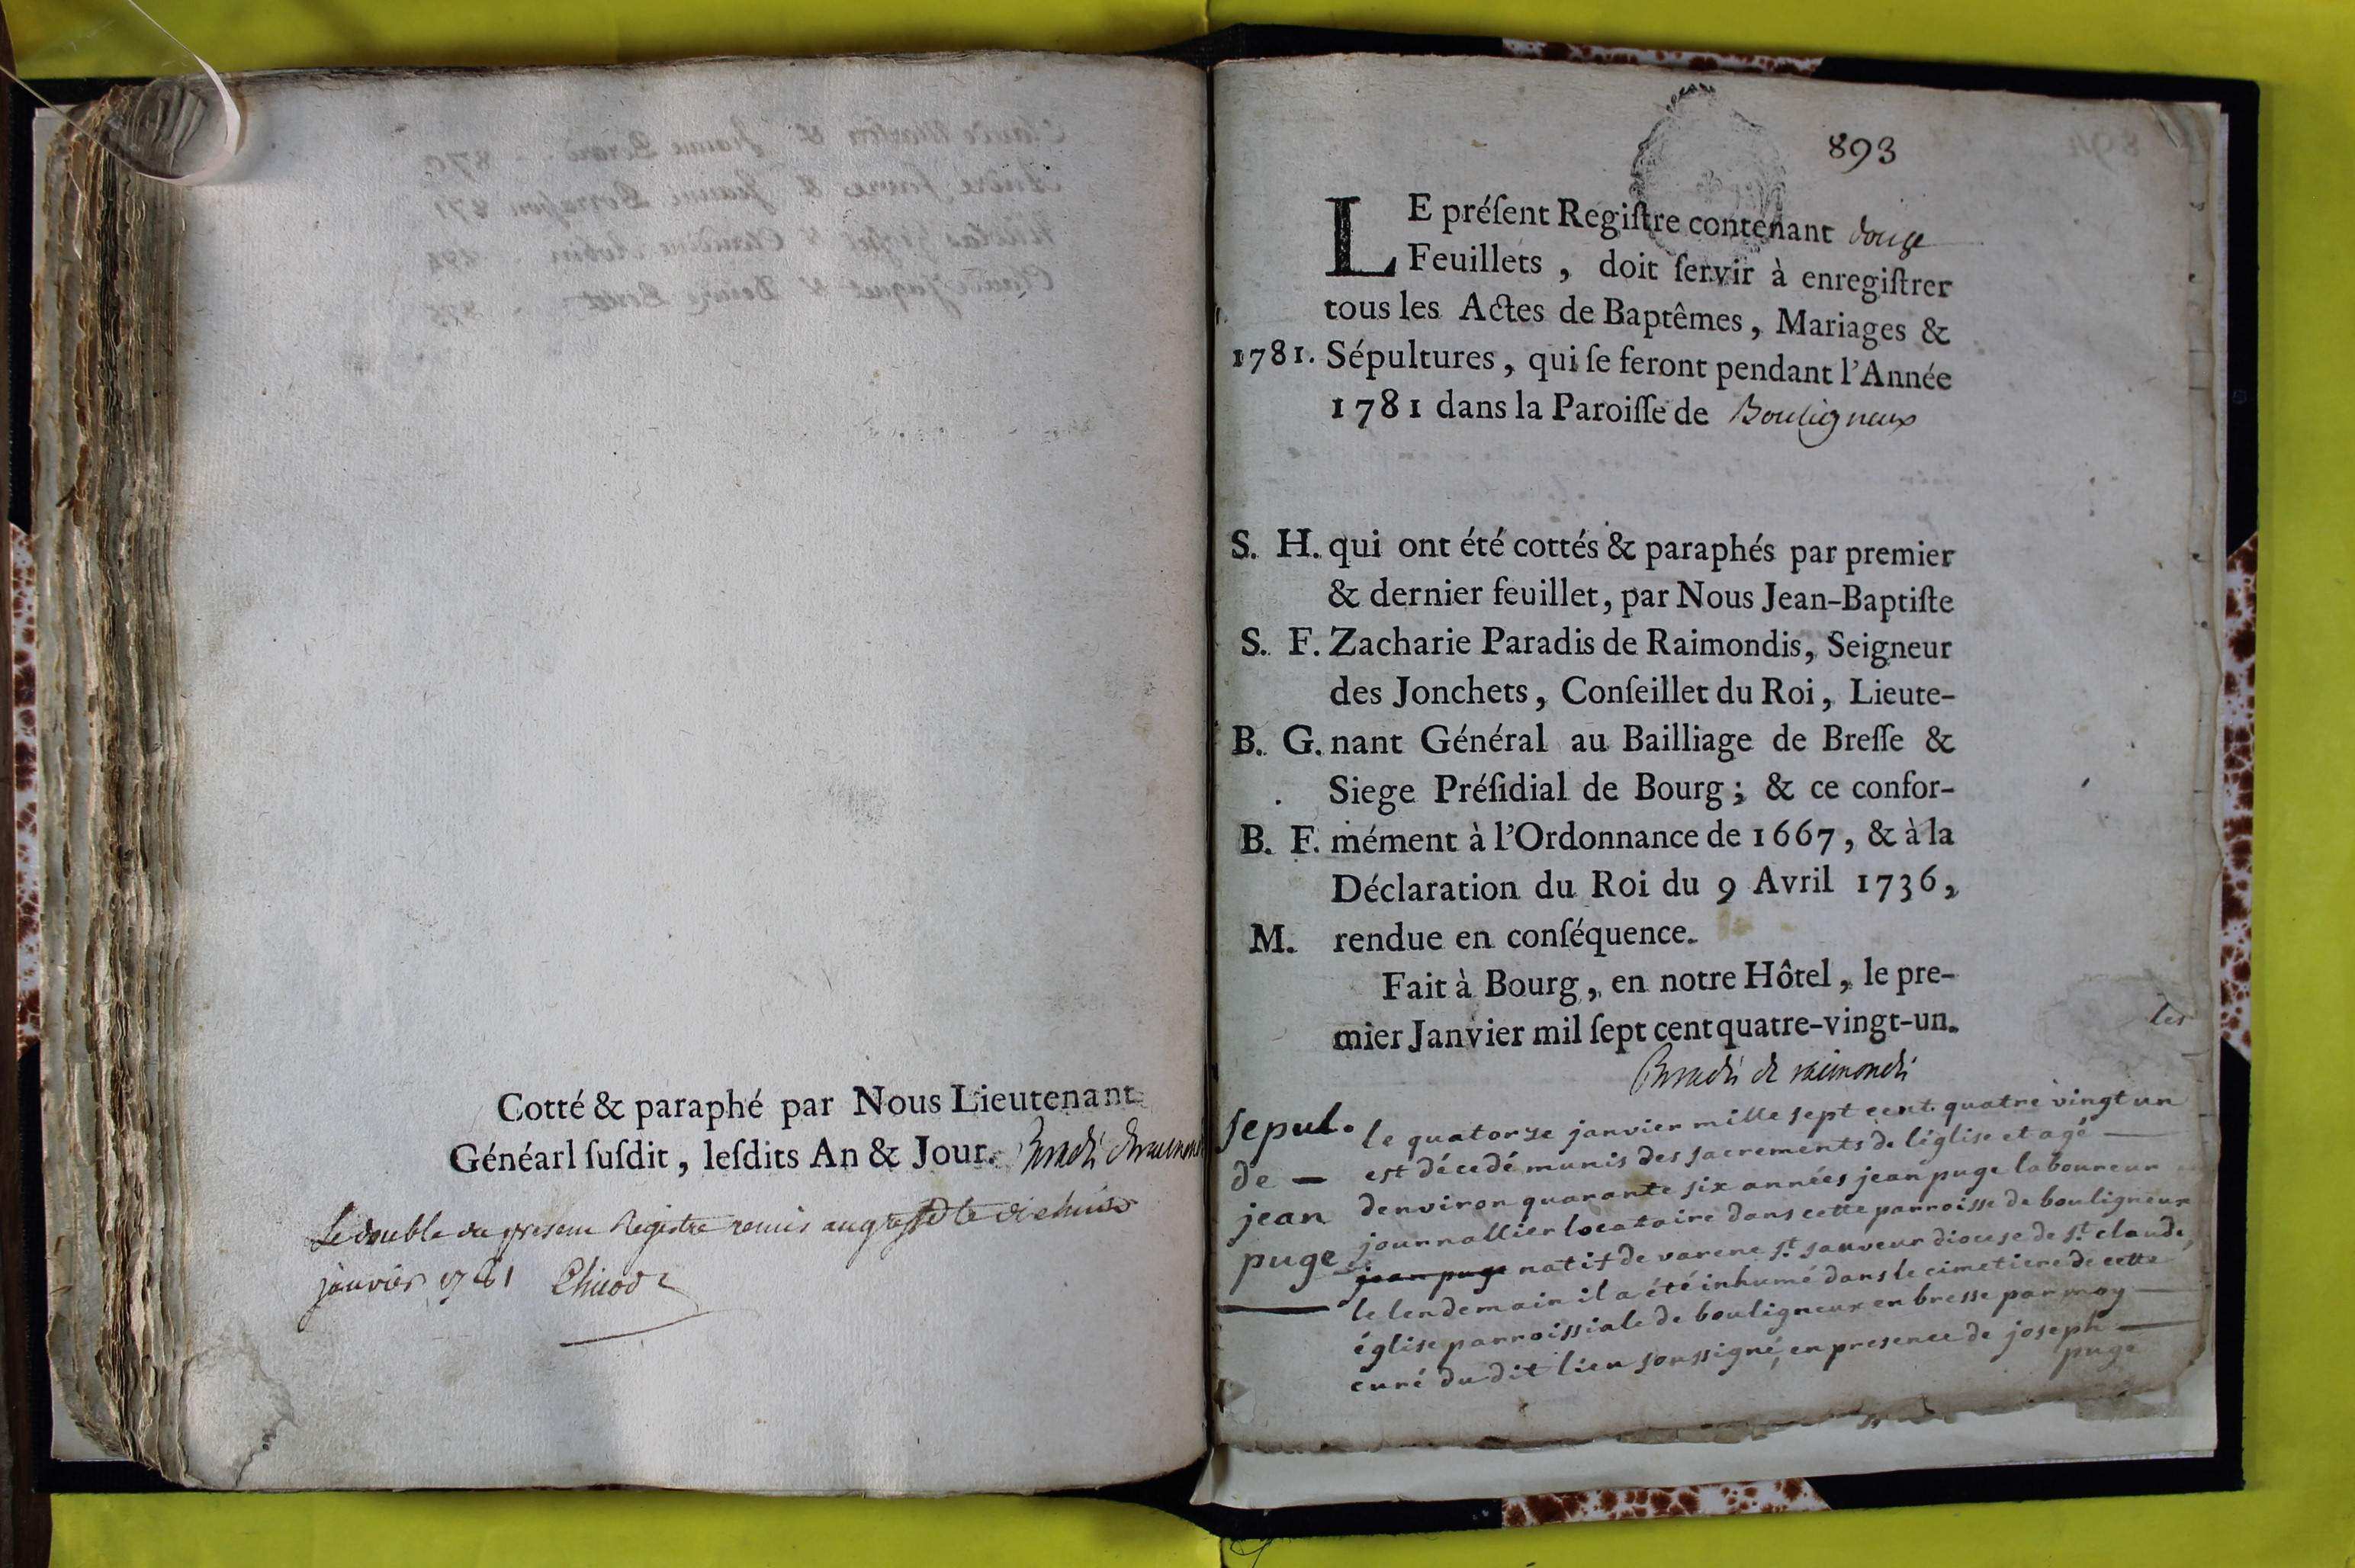 Cotté & paraphé par Nous Lieutenant
Généarl ſuſdit, leſdits An & Jour.
Le double du present Registre remis au greffe le
janvier 1781
893
LE préſent Regiſtre contenant douze
Feuillets, doit ſervir à enregiſtrer
tous les Actes de Baptêmes, Mariages &
1781. Sépultures, qui ſe feront pendant l'Année
1781 dans la Paroiſſe de Bouligneux
S. H. qui ont été cottés & paraphés par premier
& dernier feuillet, par Nous Jean-Baptiſte
S. F. Zacharie Paradis de Raimondis, Seigneur
des Jonchets, Conſeillet du Roi, Lieute-
B. G. nant Général au Bailliage de Breſſe &
Siege Préſidial de Bourg; & ce confor-
B. F. mément à l'Ordonnance de 1667, & à la
Déclaration du Roi du 9 Avril 1736,
M. rendue en conſéquence.
Fait à Bourg, en notre Hôtel, le pre-
mier Janvier mil ſept cent quatre-vingt-un.
Paradis de raimondis
sepul.
de —
jean
puge
le quatorze janvier mille sept cent quatre vingt un
est décedé munis des sacrements de l'église et agé
denviron quarante six années jean puge laboureur
journallier locataire dans cette parroisse de bouligneux
jean puge natif de varene st. sauveur diocese de st. claude,
le lendemain il a été inhumé dans le cimetiere de cette
église parroissiale de bouligneux en bresse par moy
curé du dit lieu soussigné, en presence de joseph
puge
les